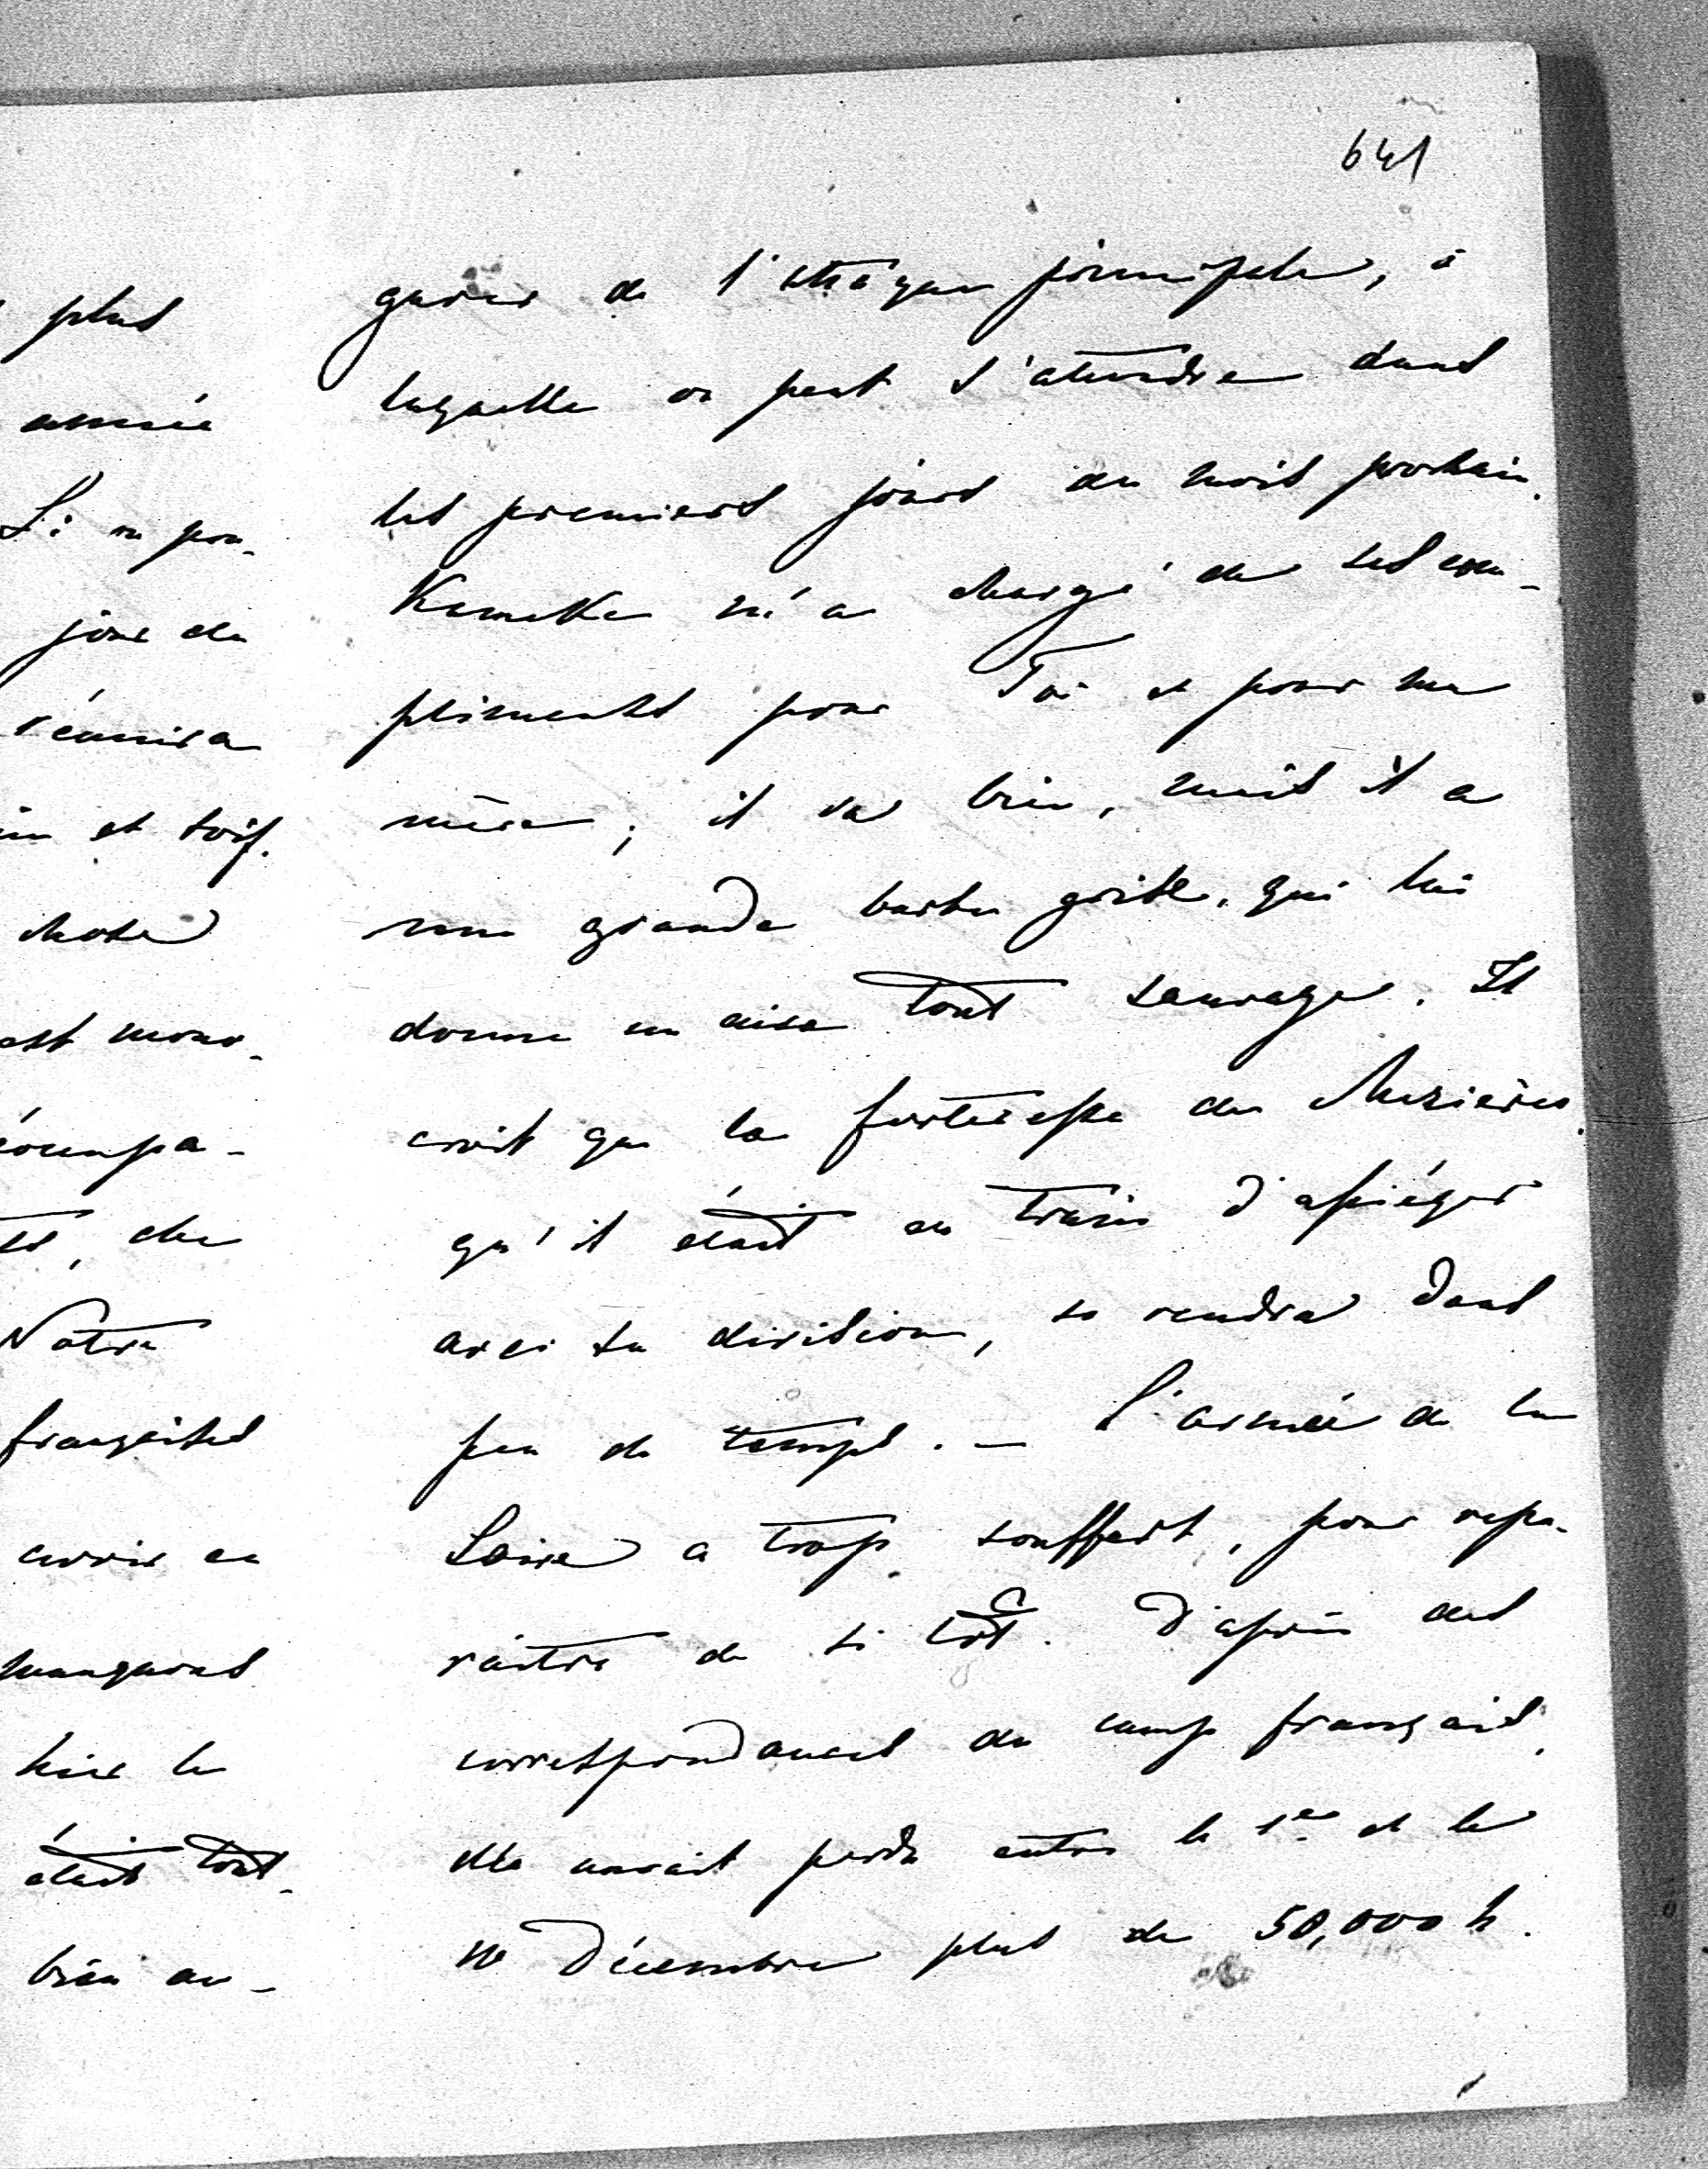 641
plus
année
Si on pou-
jour de
réunira
et soif.
chose
est mons-
écoupa-
de
Notre
françaises
avoir en
manquons
hier le
était tout-
bien au-
de l'attaque principale, à
laquelle on peut s'attendre dans
les premiers jours du mois prochain.
Kameke m'a chargé de ses com-
pliments pour Toi et pour ma
mère; il va bien, mais il a
une grande barbe grise, qui lui
donne un air tout sauvage. Il
croit que la forteresse de Mezières,
qu'il était en train d'assiéger
avec sa division, se rendra dans
peu de temps. — L'armée de la
Loire a trop souffert, pour repa-
raître de si tôt. D'après des
correspondances du camp français,
elle aurait perdu entre le 1er et le
10 Décembre plus de 50,000 h.